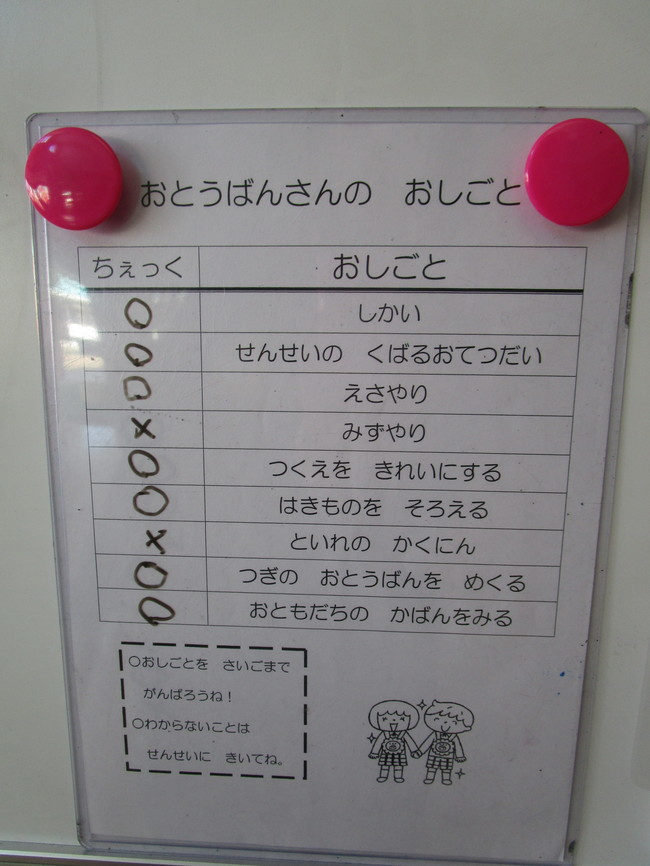 おとうばんさんの　おしごと
ちぇっく　おしごと
○　しかい
○　せんせいの　くばるおてつだい
○　えさやり
×　みずやり
○　つくえを　きれいにする
○　はきものを　そろえる
×　といれの　かくにん
○　つぎの　おとうばんを　めくる
○　おともだちの　かばんをみる
○おしごとを　さいごまで
がんばろうね！
○わからないことは
せんせいに　きいてね。